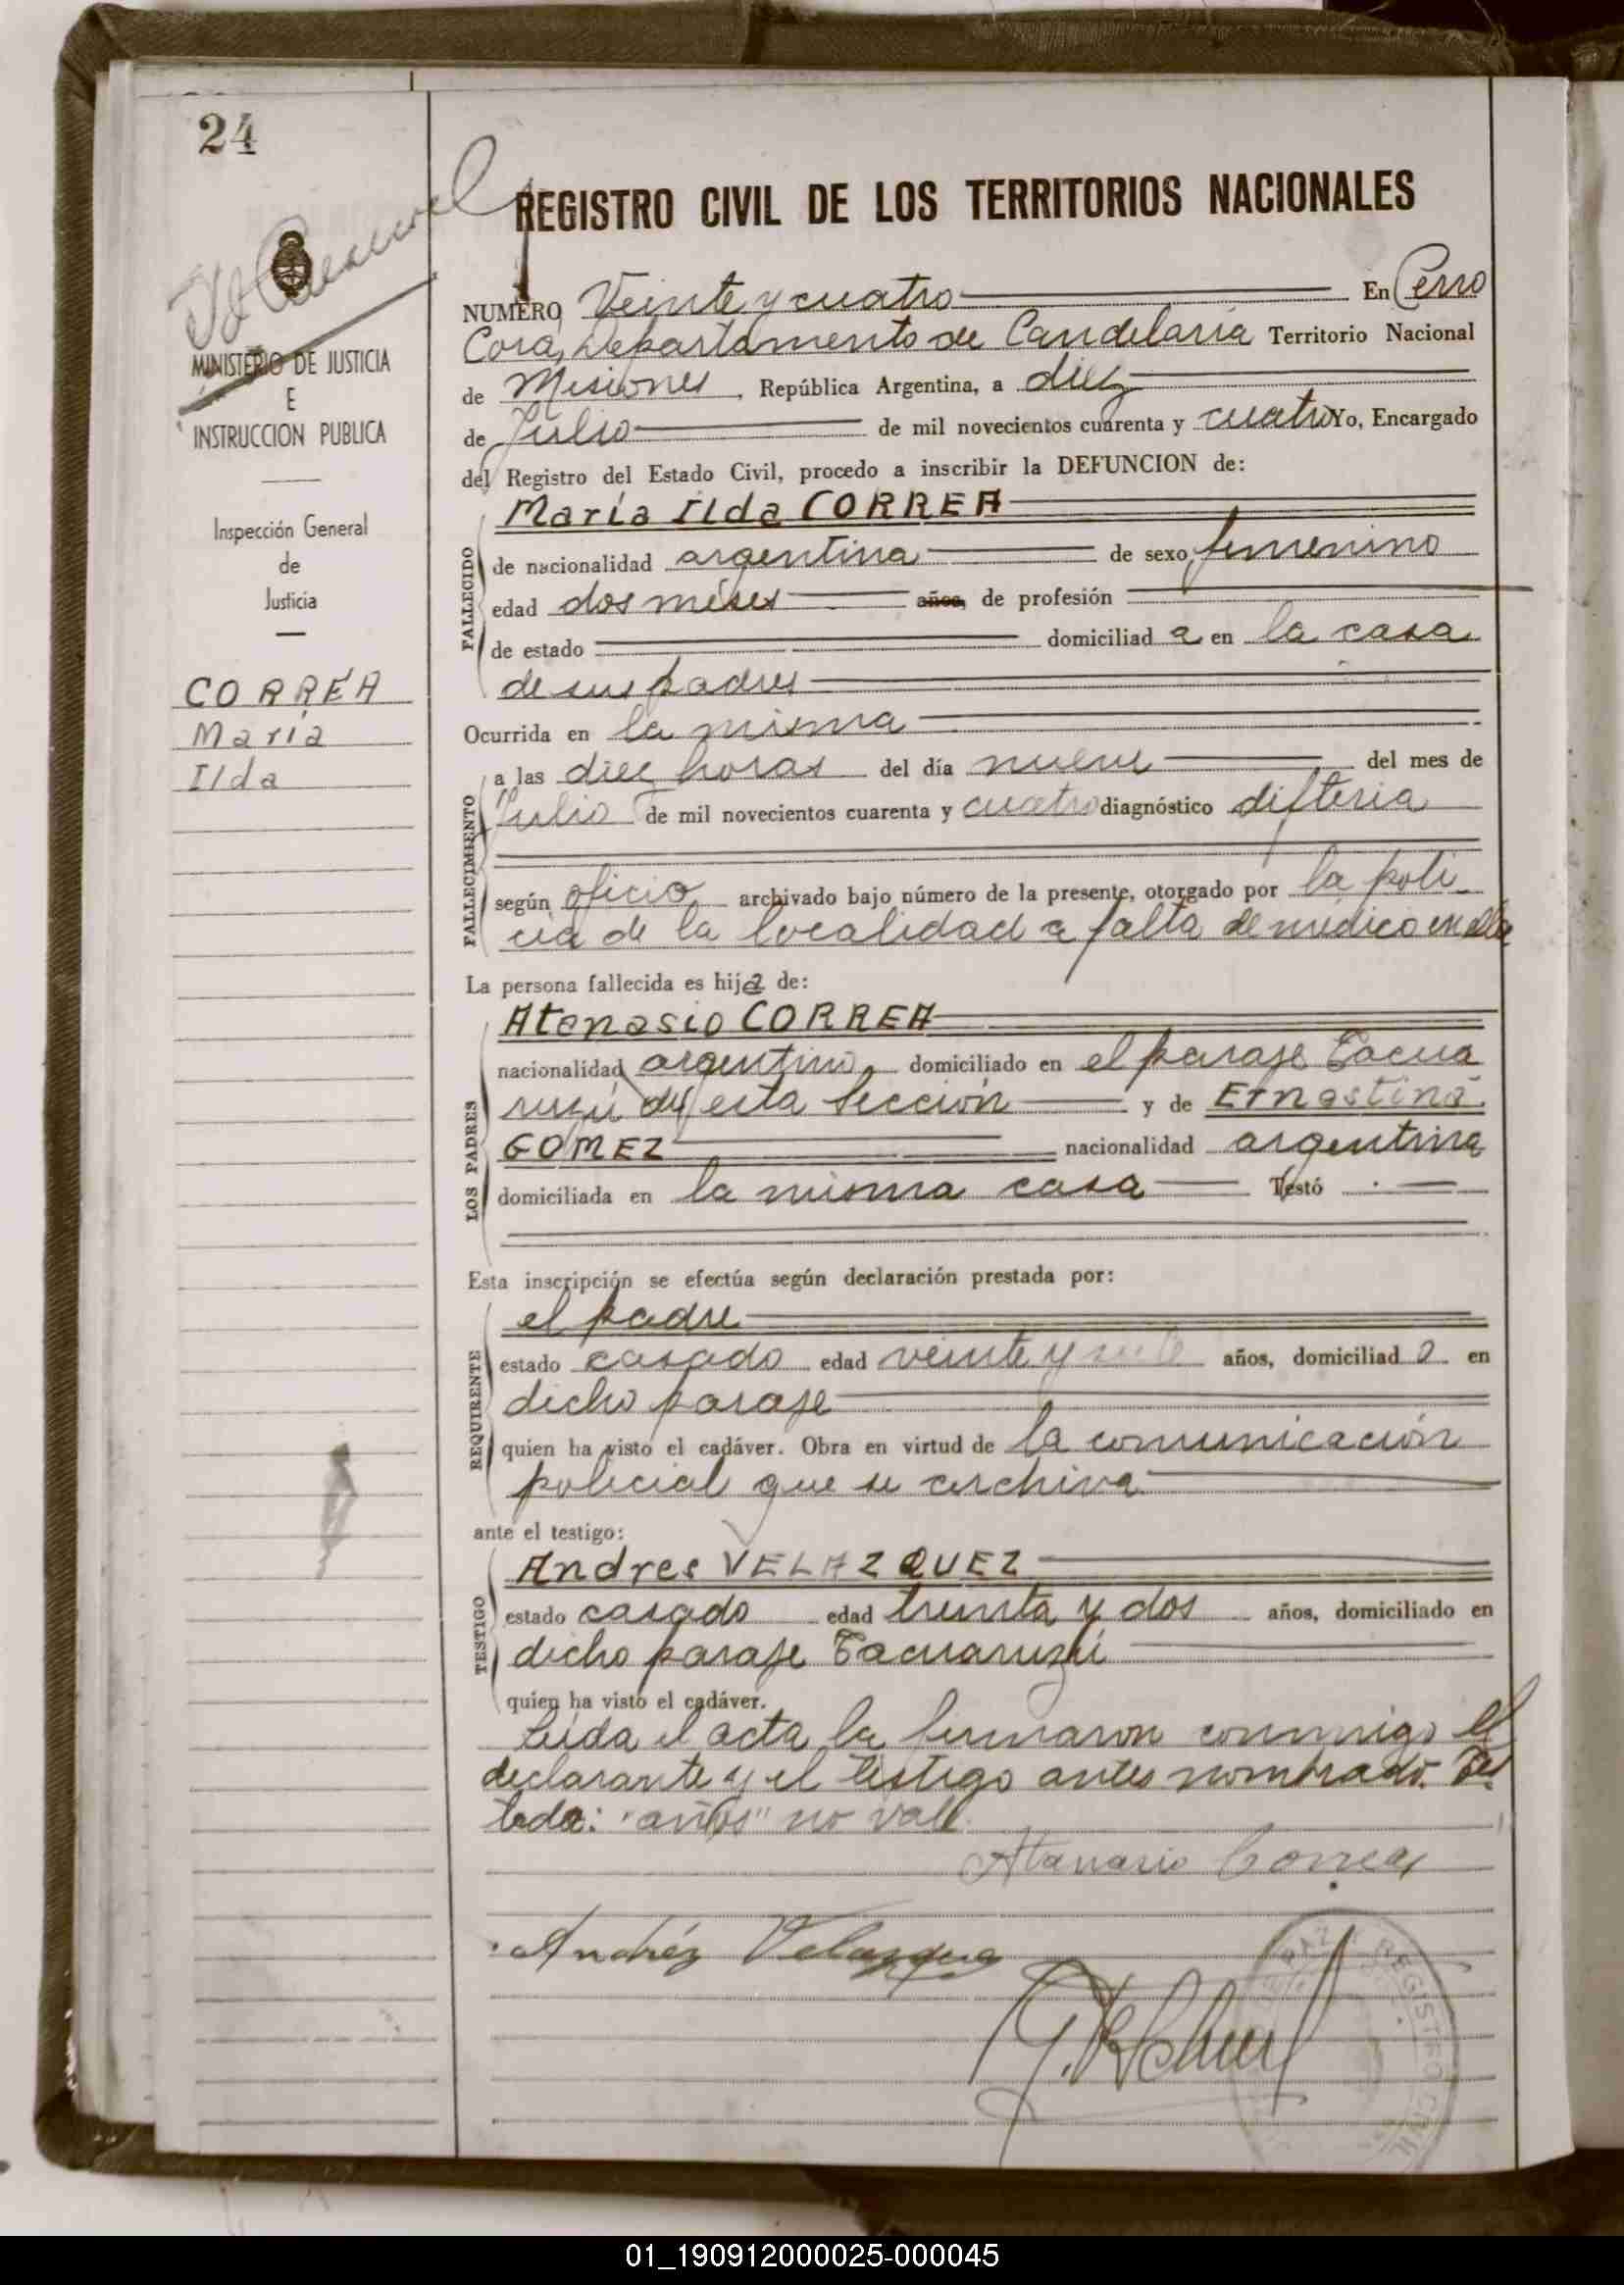 24
REGISTRO CIVIL DE LOS TERRITORIOS NACIONALES
MINISTERIO DE JUSTICIA
E
INSTRUCCION PUBLICA
Inspección General
de
Justicia
CORREA
María
Ilda
NUMERO Veinte y cuatro En Cerro
Corá, Departamento de Candelaria Territorio Nacional
de Misiones, República Argentina, a diez
de Julio de mil novecientos cuarenta y cuatro Yo, Encargado
del Registro del Estado Civil, procedo a inscribir la DEFUNCION de:
FALLECIDO
María Ilda CORREA
de nacionalidad argentina de sexo femenino
edad dos meses años, de profesión
de estado domiciliad a en la casa
de sus padres
Ocurrida en la misma
FALLECIMIENTO
a las diez horas del día nueve del mes de
Julio de mil novecientos cuarenta y cuatro diagnóstico difteria
según oficio archivado bajo número de la presente, otorgado por la poli-
cia de la localidad a falta de médico en ella
La persona fallecida es hija de:
LOS PADRES
Atanasio CORREA
nacionalidad argentino, domiciliado en el paraje Tacua
ruzú de esta Sección y de Ernestina
GOMEZ nacionalidad argentina
domiciliada en la misma casa Testó
Esta inscripción se efectúa según declaración prestada por:
REQUIRENTE
el padre
estado casado edad veinte y siete años, domiciliad o en
dicho paraje
quien ha visto el cadáver. Obra en virtud de la comunicación
policial que se archiva
ante el testigo:
TESTIGO
Andres VELAZQUEZ
estado casado edad treinta y dos años, domiciliado en
dicho paraje Tacuaruzú
quien ha visto el cadáver.
Leída el acta la firmaron conmigo el
declarante y el testigo antes nombrado. Tes
tado: "años" no vale.
Atanasio Correa
Andréz Velazquez
REGISTRO CIVIL
01_190912000025-000045